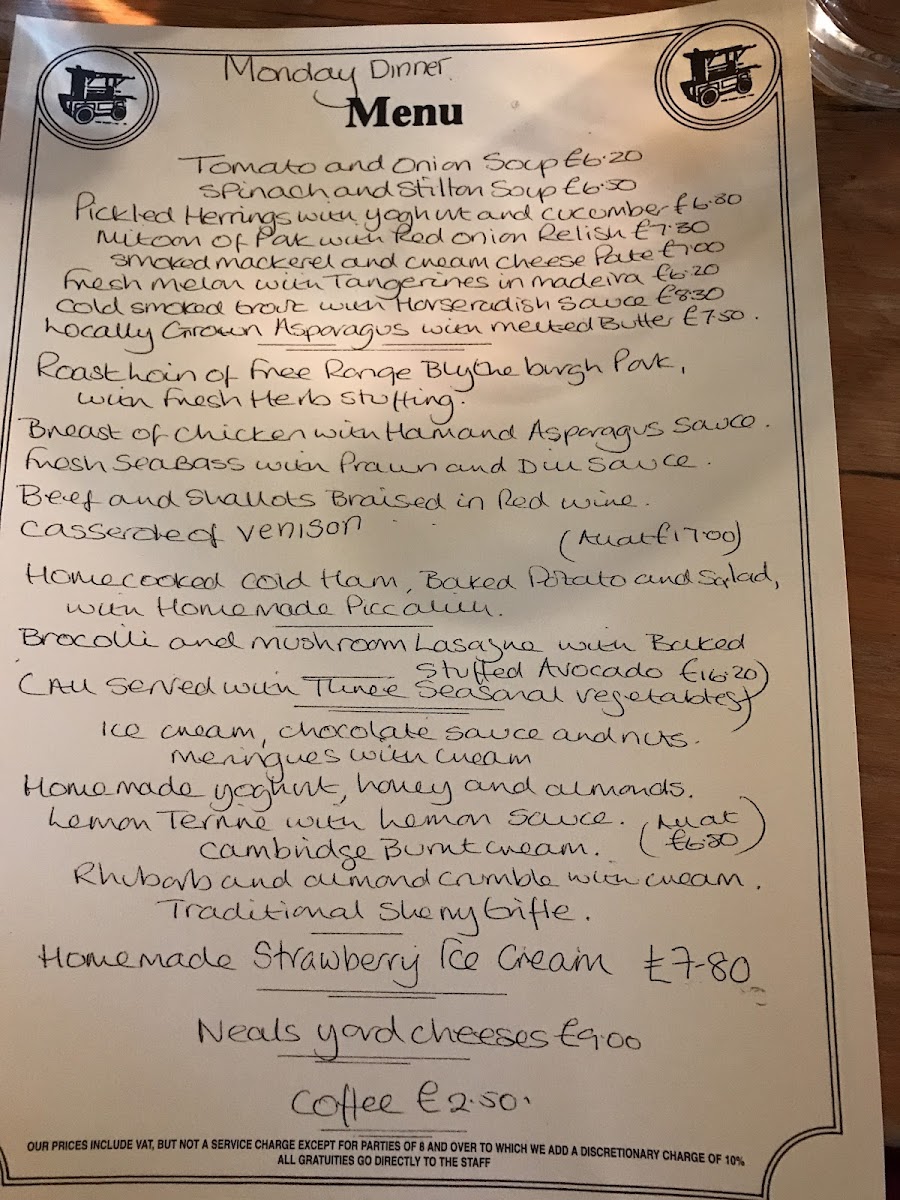 Monday Dinner.
Menu
Tomato and Onion Soup £6·20
Spinach and Stilton Soup £6·50
Pickled Herrings with yoghurt and cucumber £6·80
of Pork with Red Onion Relish £7·30
Smoked mackerel and cream cheese Pate £7·00
Fresh Melon with Tangerines in madeira £6·20
Cold smoked trout with Horseradish Sauce £8·30
Locally Grown Asparagus with melted Butter £7·50.
Roast Loin of Free Range Blytheburgh Pork,
with Fresh Herb Stuffing.
Breast of Chicken with Ham and Asparagus Sauce.
Fresh Sea Bass with Prawn and Dill Sauce.
Beef and Shallots Braised in Red wine.
Casserole of Venison
(All at £17·00)
Homecooked Cold Ham, Baked Potato and Salad,
with Homemade Piccalilli.
Brocolli and mushroom Lasagne with Baked
Stuffed Avocado £16·20)
(All served with Three Seasonal vegetables)
Ice cream, chocolate sauce and nuts.
Meringues with cream
Homemade yoghurt, honey and almonds.
Lemon Terrine with Lemon Sauce.
(All at
£6·50)
Cambridge Burnt Cream.
Rhubarb and almond crumble with cream.
Traditional Sherry trifle.
Homemade Strawberry Ice Cream £7-80
Neals yard cheeses £9·00
Coffee £2·50.
OUR PRICES INCLUDE VAT, BUT NOT A SERVICE CHARGE EXCEPT FOR PARTIES OF 8 AND OVER TO WHICH WE ADD A DISCRETIONARY CHARGE OF 10%
ALL GRATUITIES GO DIRECTLY TO THE STAFF